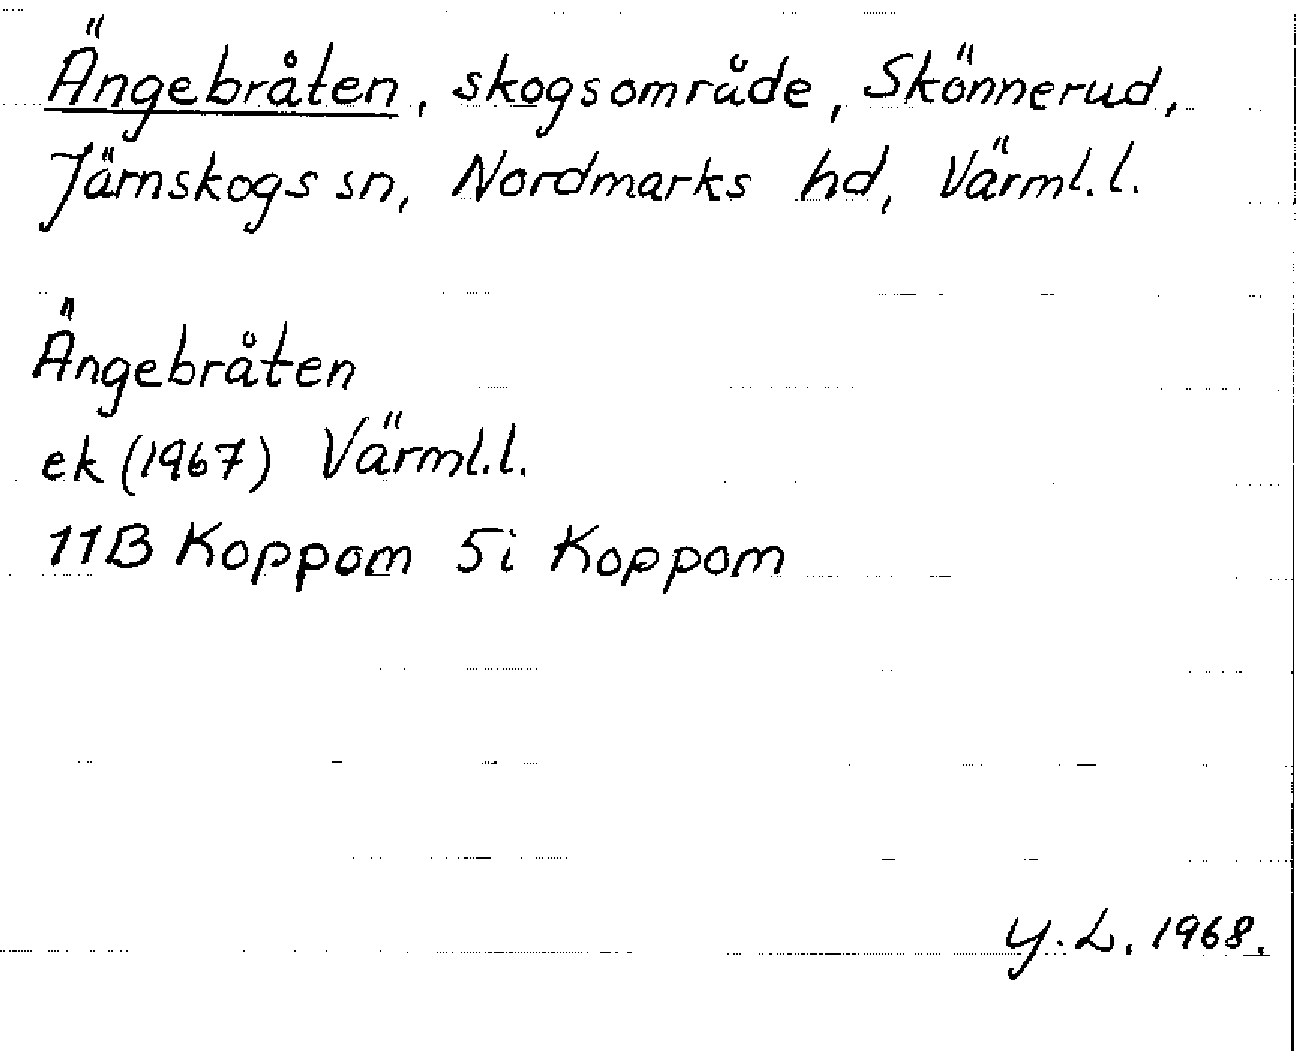 Ängebråten, skogsområde, Skönnerud,
Järnskogs sn, Nordmarks hd, Värml. l.
Ängebråten
ek (1967) Värml. l.
11B Koppom 5i Koppom
Y. L. 1968.